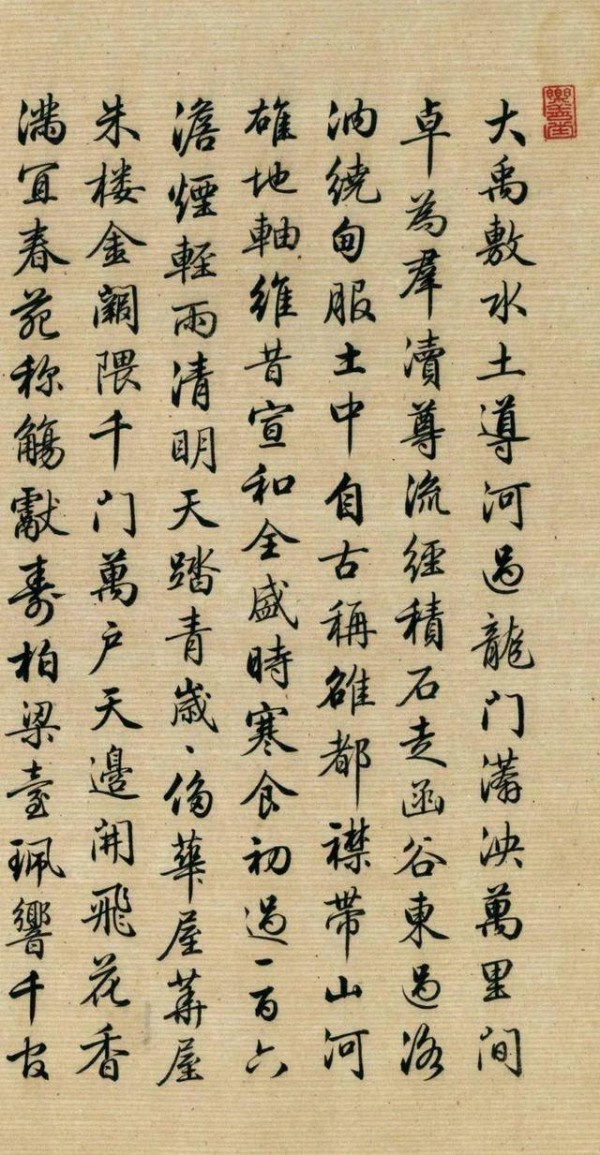 大禹敷水土導河過龍門漭泱萬里間
卓為羣瀆尊流經積石走函谷東過洛
汭繞甸服土中自古稱雒都襟帶山河
雄地軸維昔宣和全盛時寒食初過一百六
澹煙輕雨清明天踏青歲〻侈華屋華屋
朱楼金闕隈千門萬户天邊開飛花香
滿宜春苑称觴獻壽柏梁臺珮響千官